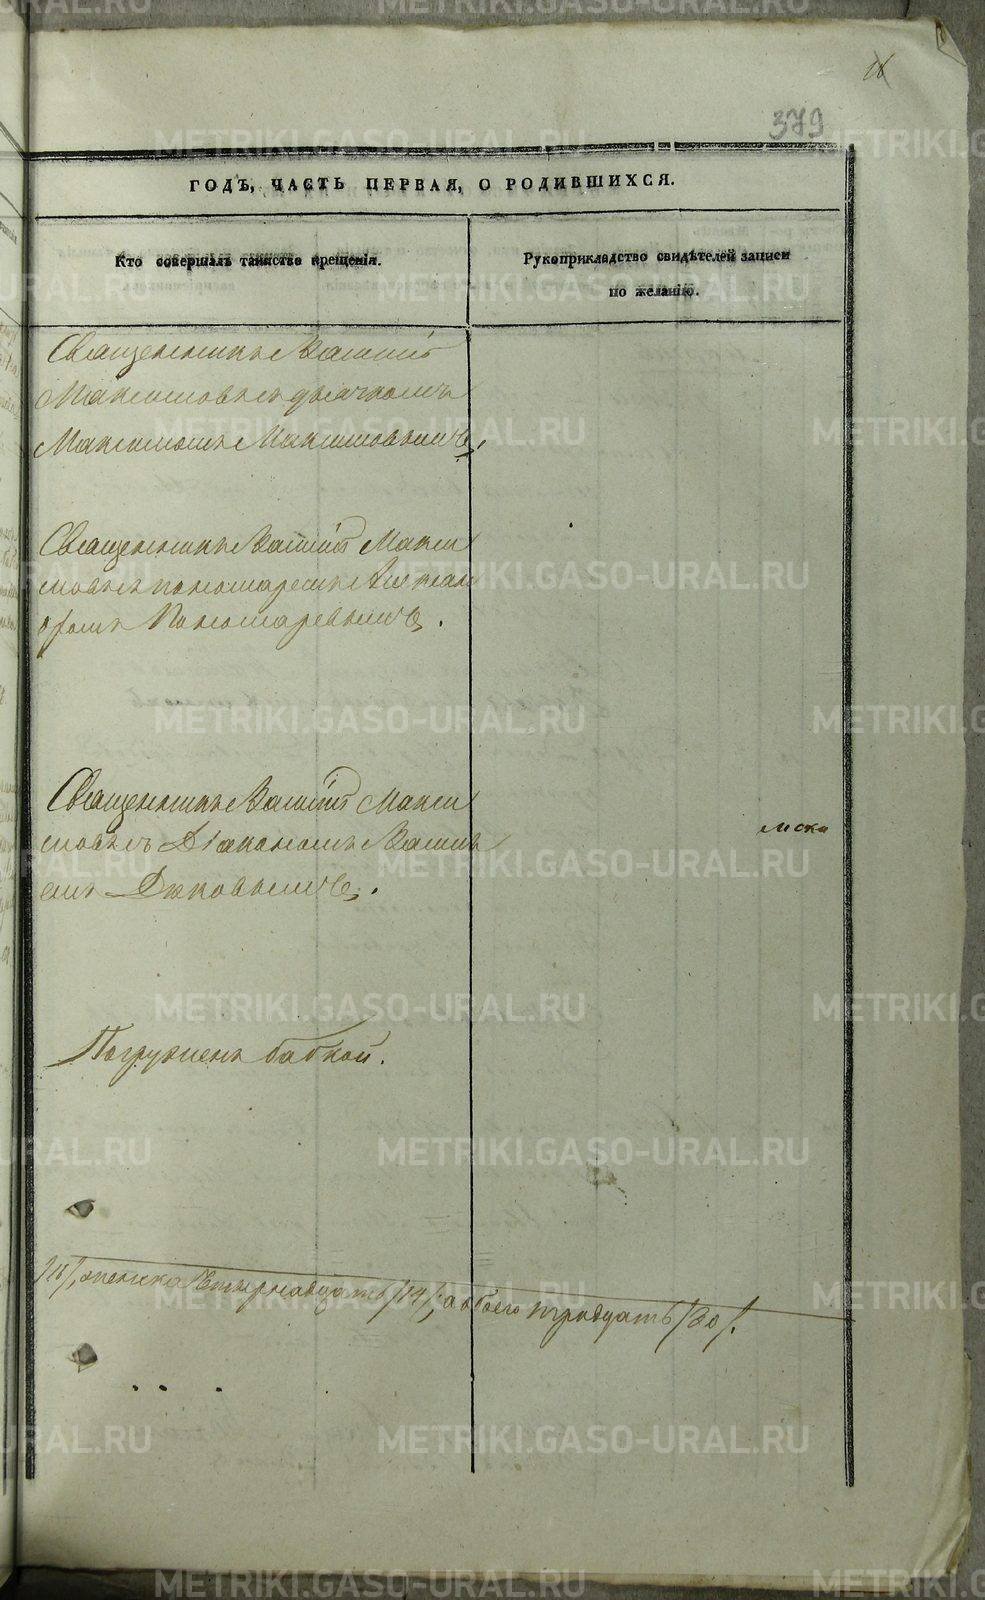 16
379
ГОДЪ, ЧАСТЬ ПЕРВАЯ, О РОДИВШИХСЯ.
Кто совершалъ таинство крещенія.
Рукоприкладство свидѣтелей записи
по желанію.
Священникъ Василій
Максимовъ съ дьячкомъ
Максимомъ Максимовымъ.
Священникъ Василій Макси
мовъ съ пономаремъ Александ
ромъ Пономаревымъ.
Священникъ Василій Макси
мовъ съ Діакономъ Васи
емъ
Погруженъ бабкой.
/16/, женска Четырнадцать /14/, а обоего тридцать /30/.
METRIKI.GASO-URAL.RU